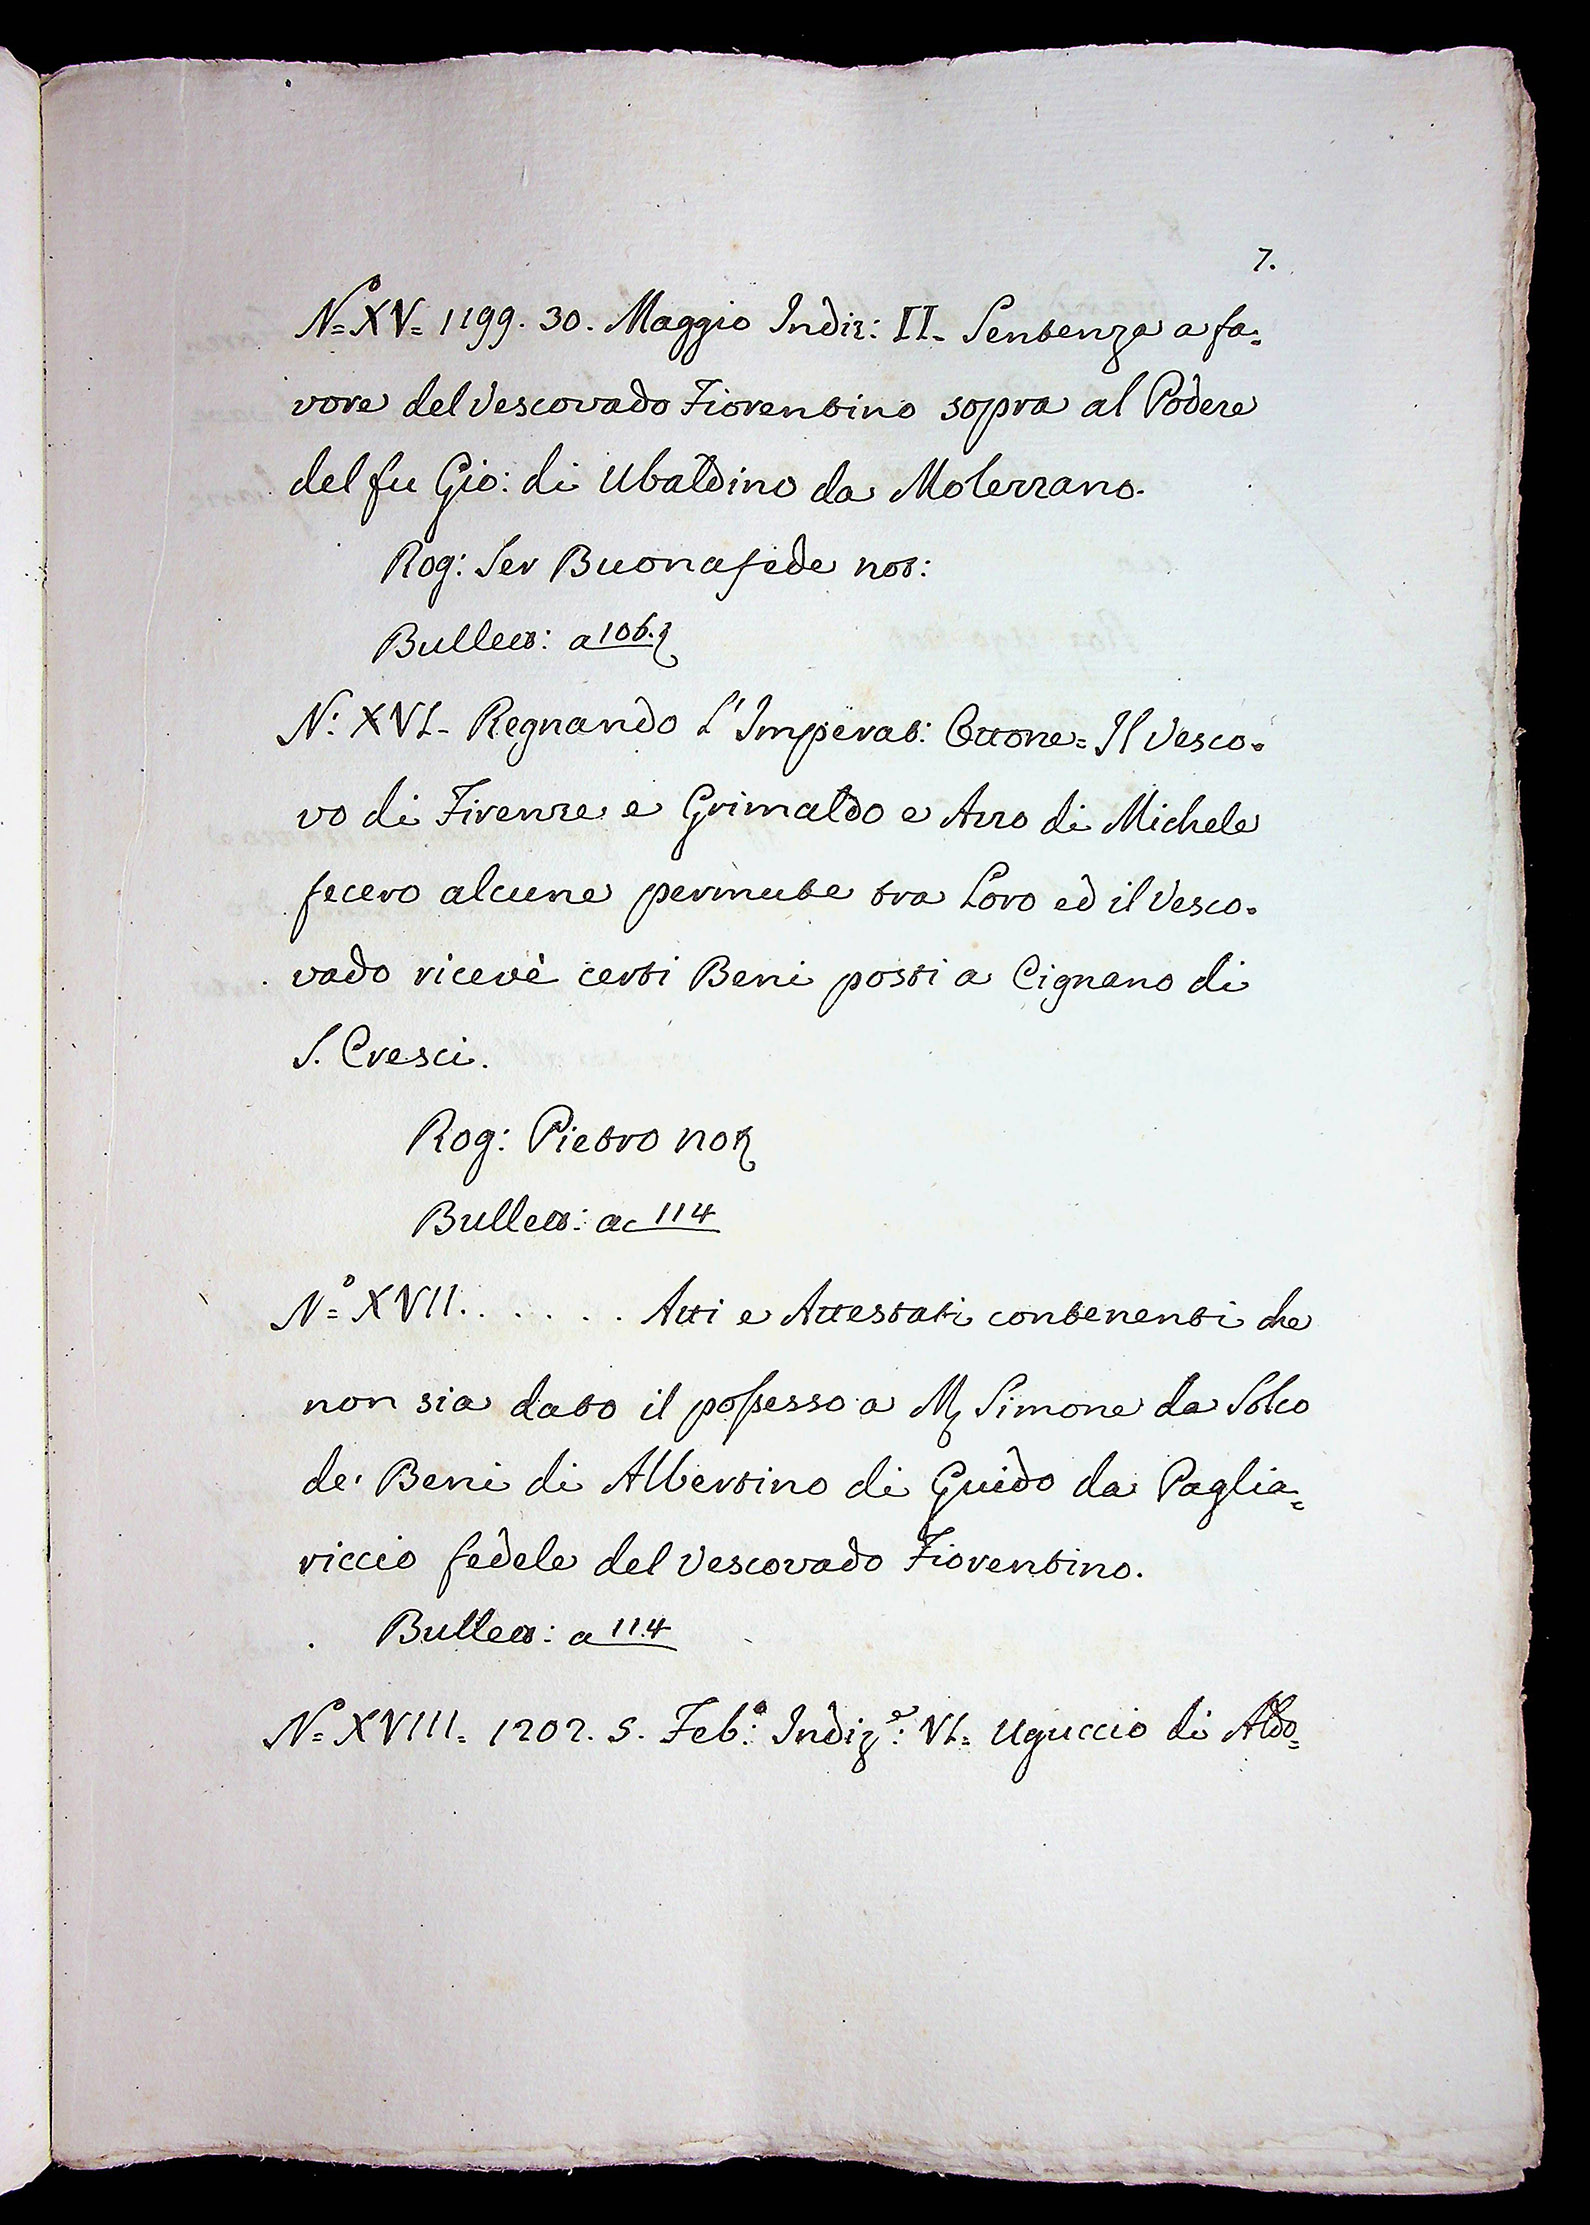 7.
N.º XV= 1199. 30. Maggio Indiz: II. Sentenza a fa=
vore del Vescovado Fiorentino sopra al Podere
del fu Gio: di Ubaldino da Molezzano.
Rog: Ser Buonafede not:
Bullett: a 106.
N: XVI- Regnando L'Imperat: Ottone= Il Vesco=
vo di Firenze e Grimaldo e Azzo di Michele
fecero alcune permute tra Loro ed il Vesco=
vado ricevè certi Beni posti a Cignano di
S. Cresci.
Rog: Pietro not
Bullett: ac 114
N.º XVII. . . . . . . Atti e Attestati contenenti che
non sia dato il possesso a M. Simone da Solco
de' Beni di Albertino di Guido da Paglia=
riccio fedele del Vescovado Fiorentino.
Bullett: a 114
N.º XVIII= 1202. 5. Feb.º Indiz.e: VI= Uguccio di Aldo=